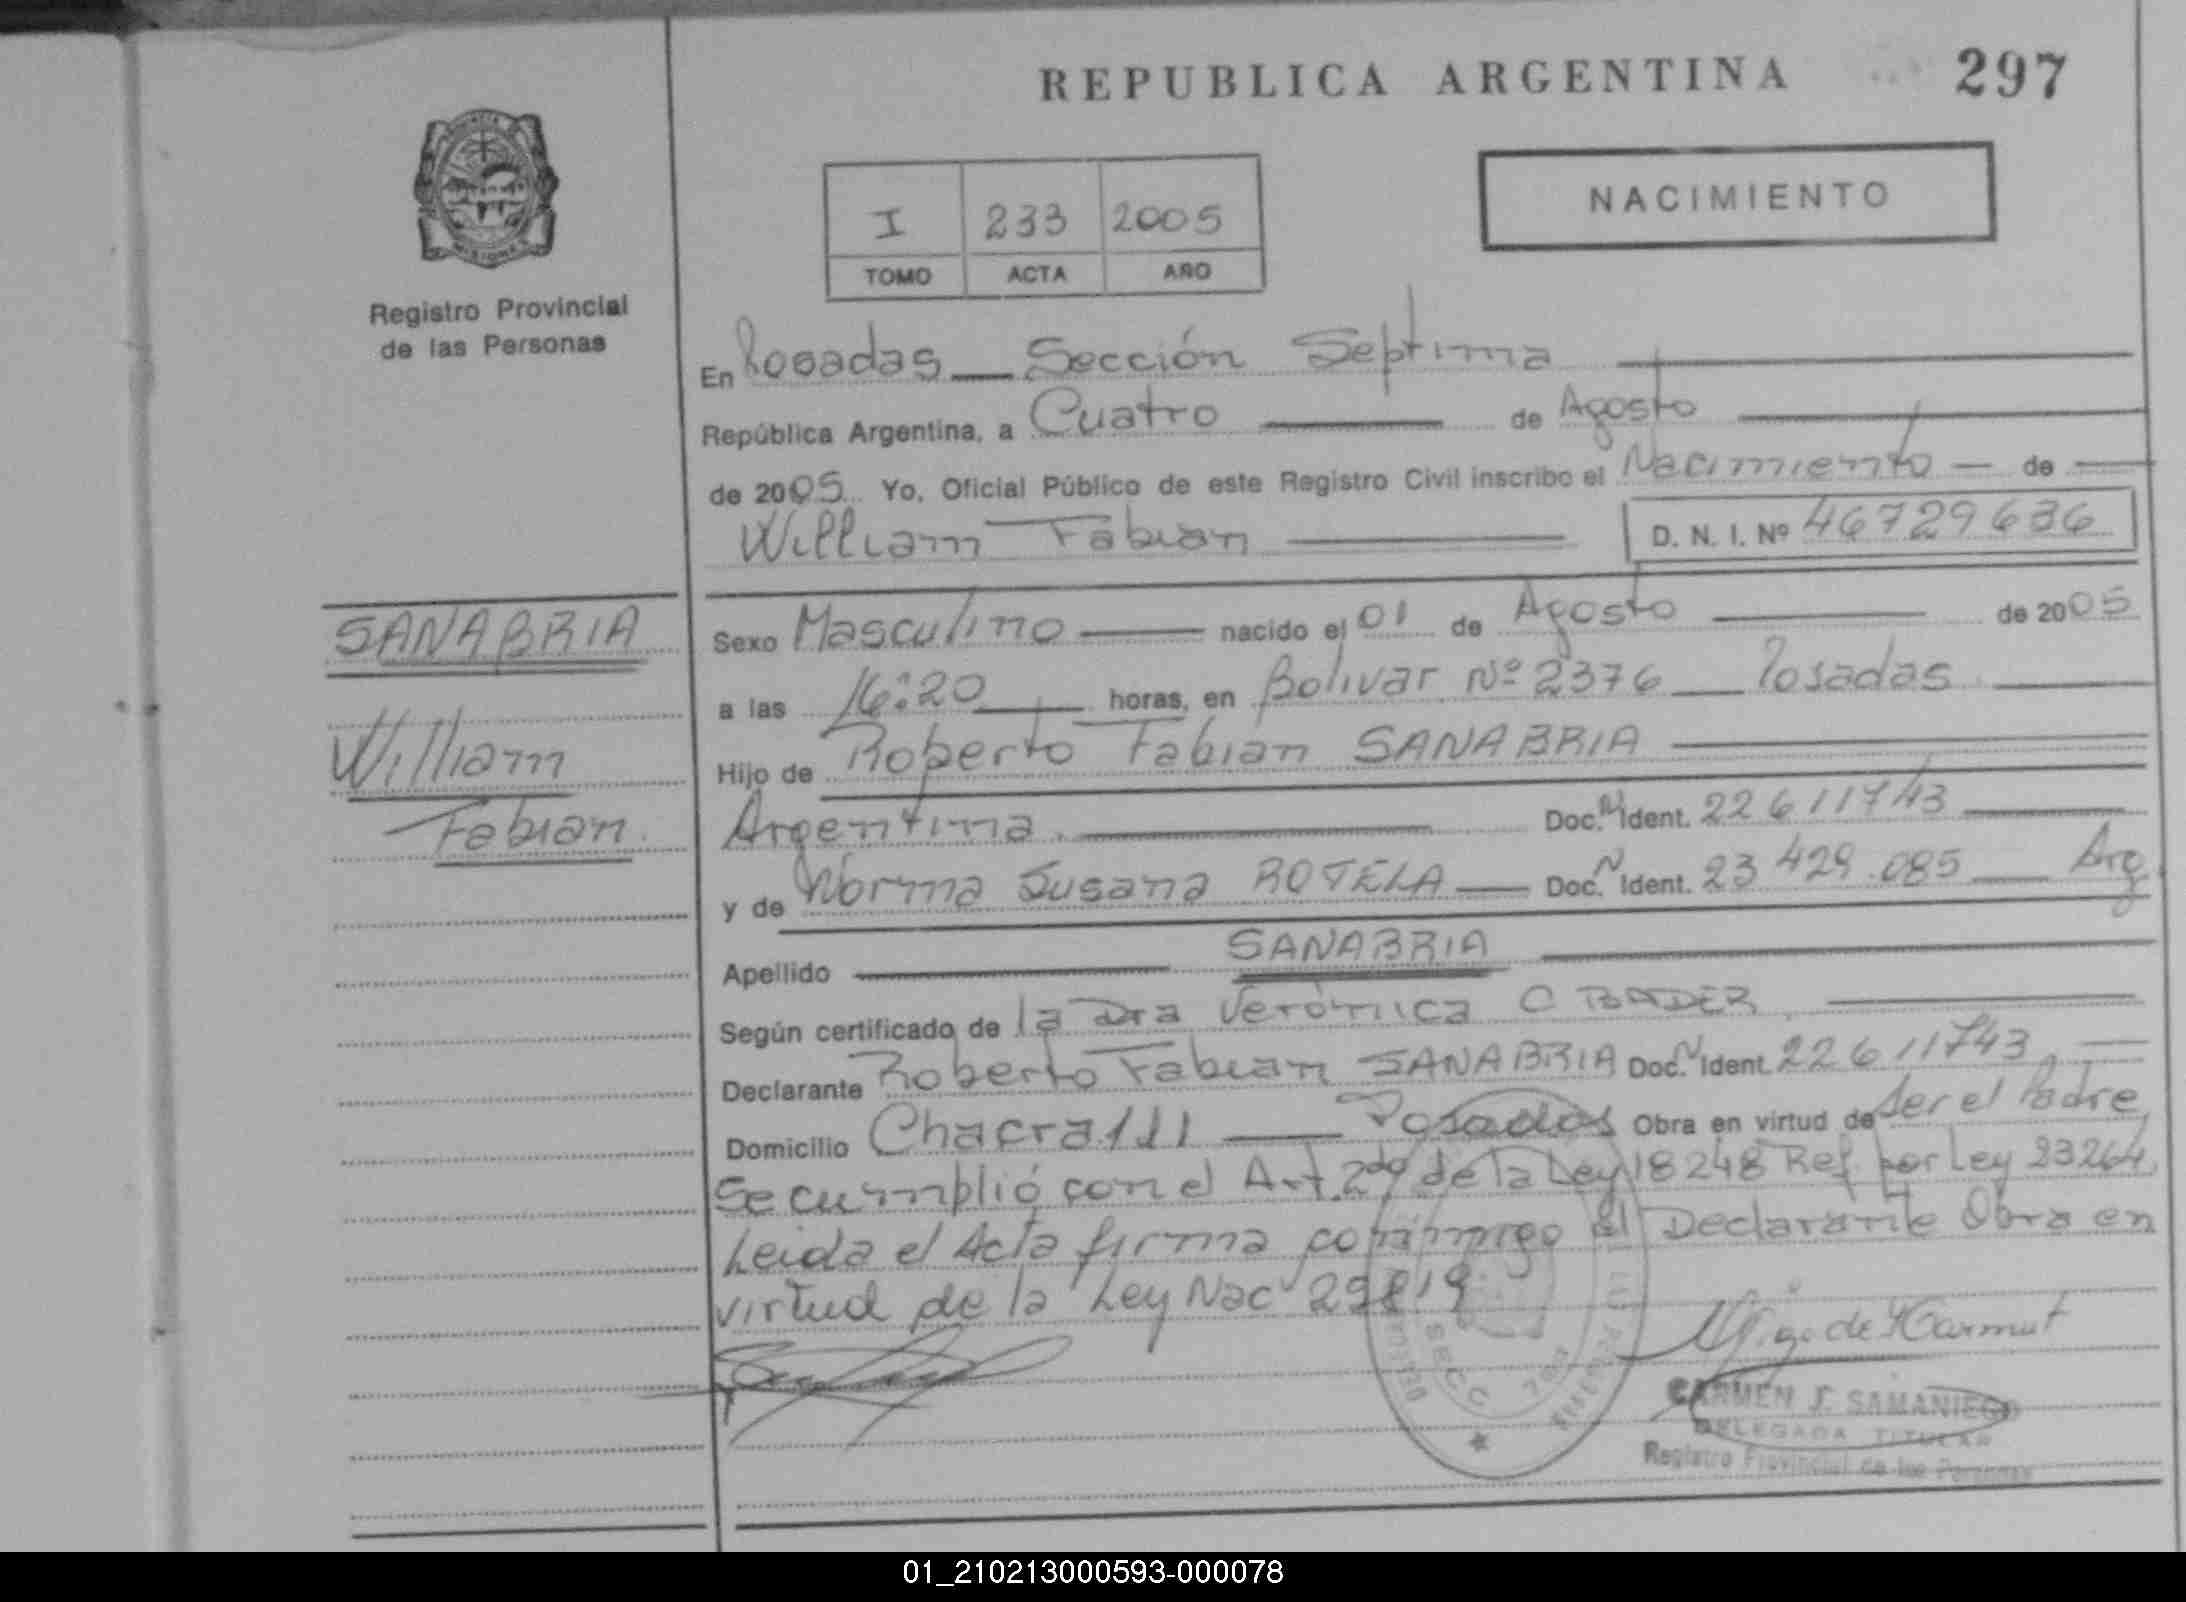 REPUBLICA ARGENTINA 297
NACIMIENTO
I 233 2005
TOMO ACTA AÑO
MISIONES
Registro Provincial
de las Personas
En Posadas — Sección Septima
República Argentina, a Cuatro de Agosto
de 2005. Yo, Oficial Público de este Registro Civil inscribo el Nacimiento — de
William Fabian D. N. I. Nº 46729636
SANABRIA
William
Fabian.
Sexo Masculino nacido el 01 de Agosto de 2005
a las 16:20 horas, en Bolivar Nº 2376 — Posadas
Hijo de Roberto Fabian SANABRIA
Argentina. Doc. N Ident. 22611743
y de Norma Susana ROTELA — Doc. N Ident. 23 429.085 — Arg.
Apellido SANABRIA
Según certificado de la Dra Verónica C BADER
Declarante Roberto Fabian SANABRIA Doc. N Ident. 22611743
Domicilio Chacra 111 — Posadas Obra en virtud de ser el Padre
Se cumplió con el Art. 2do de la Ley 18248 Ref. por Ley 23264,
Leida el Acta firma conmigo el Declarante Obra en
virtud de la Ley Nac
SECC 7
CARMEN J. SAMANIEGO
DELEGADA TITULAR
Registro Provincial de las Personas
01_210213000593-000078